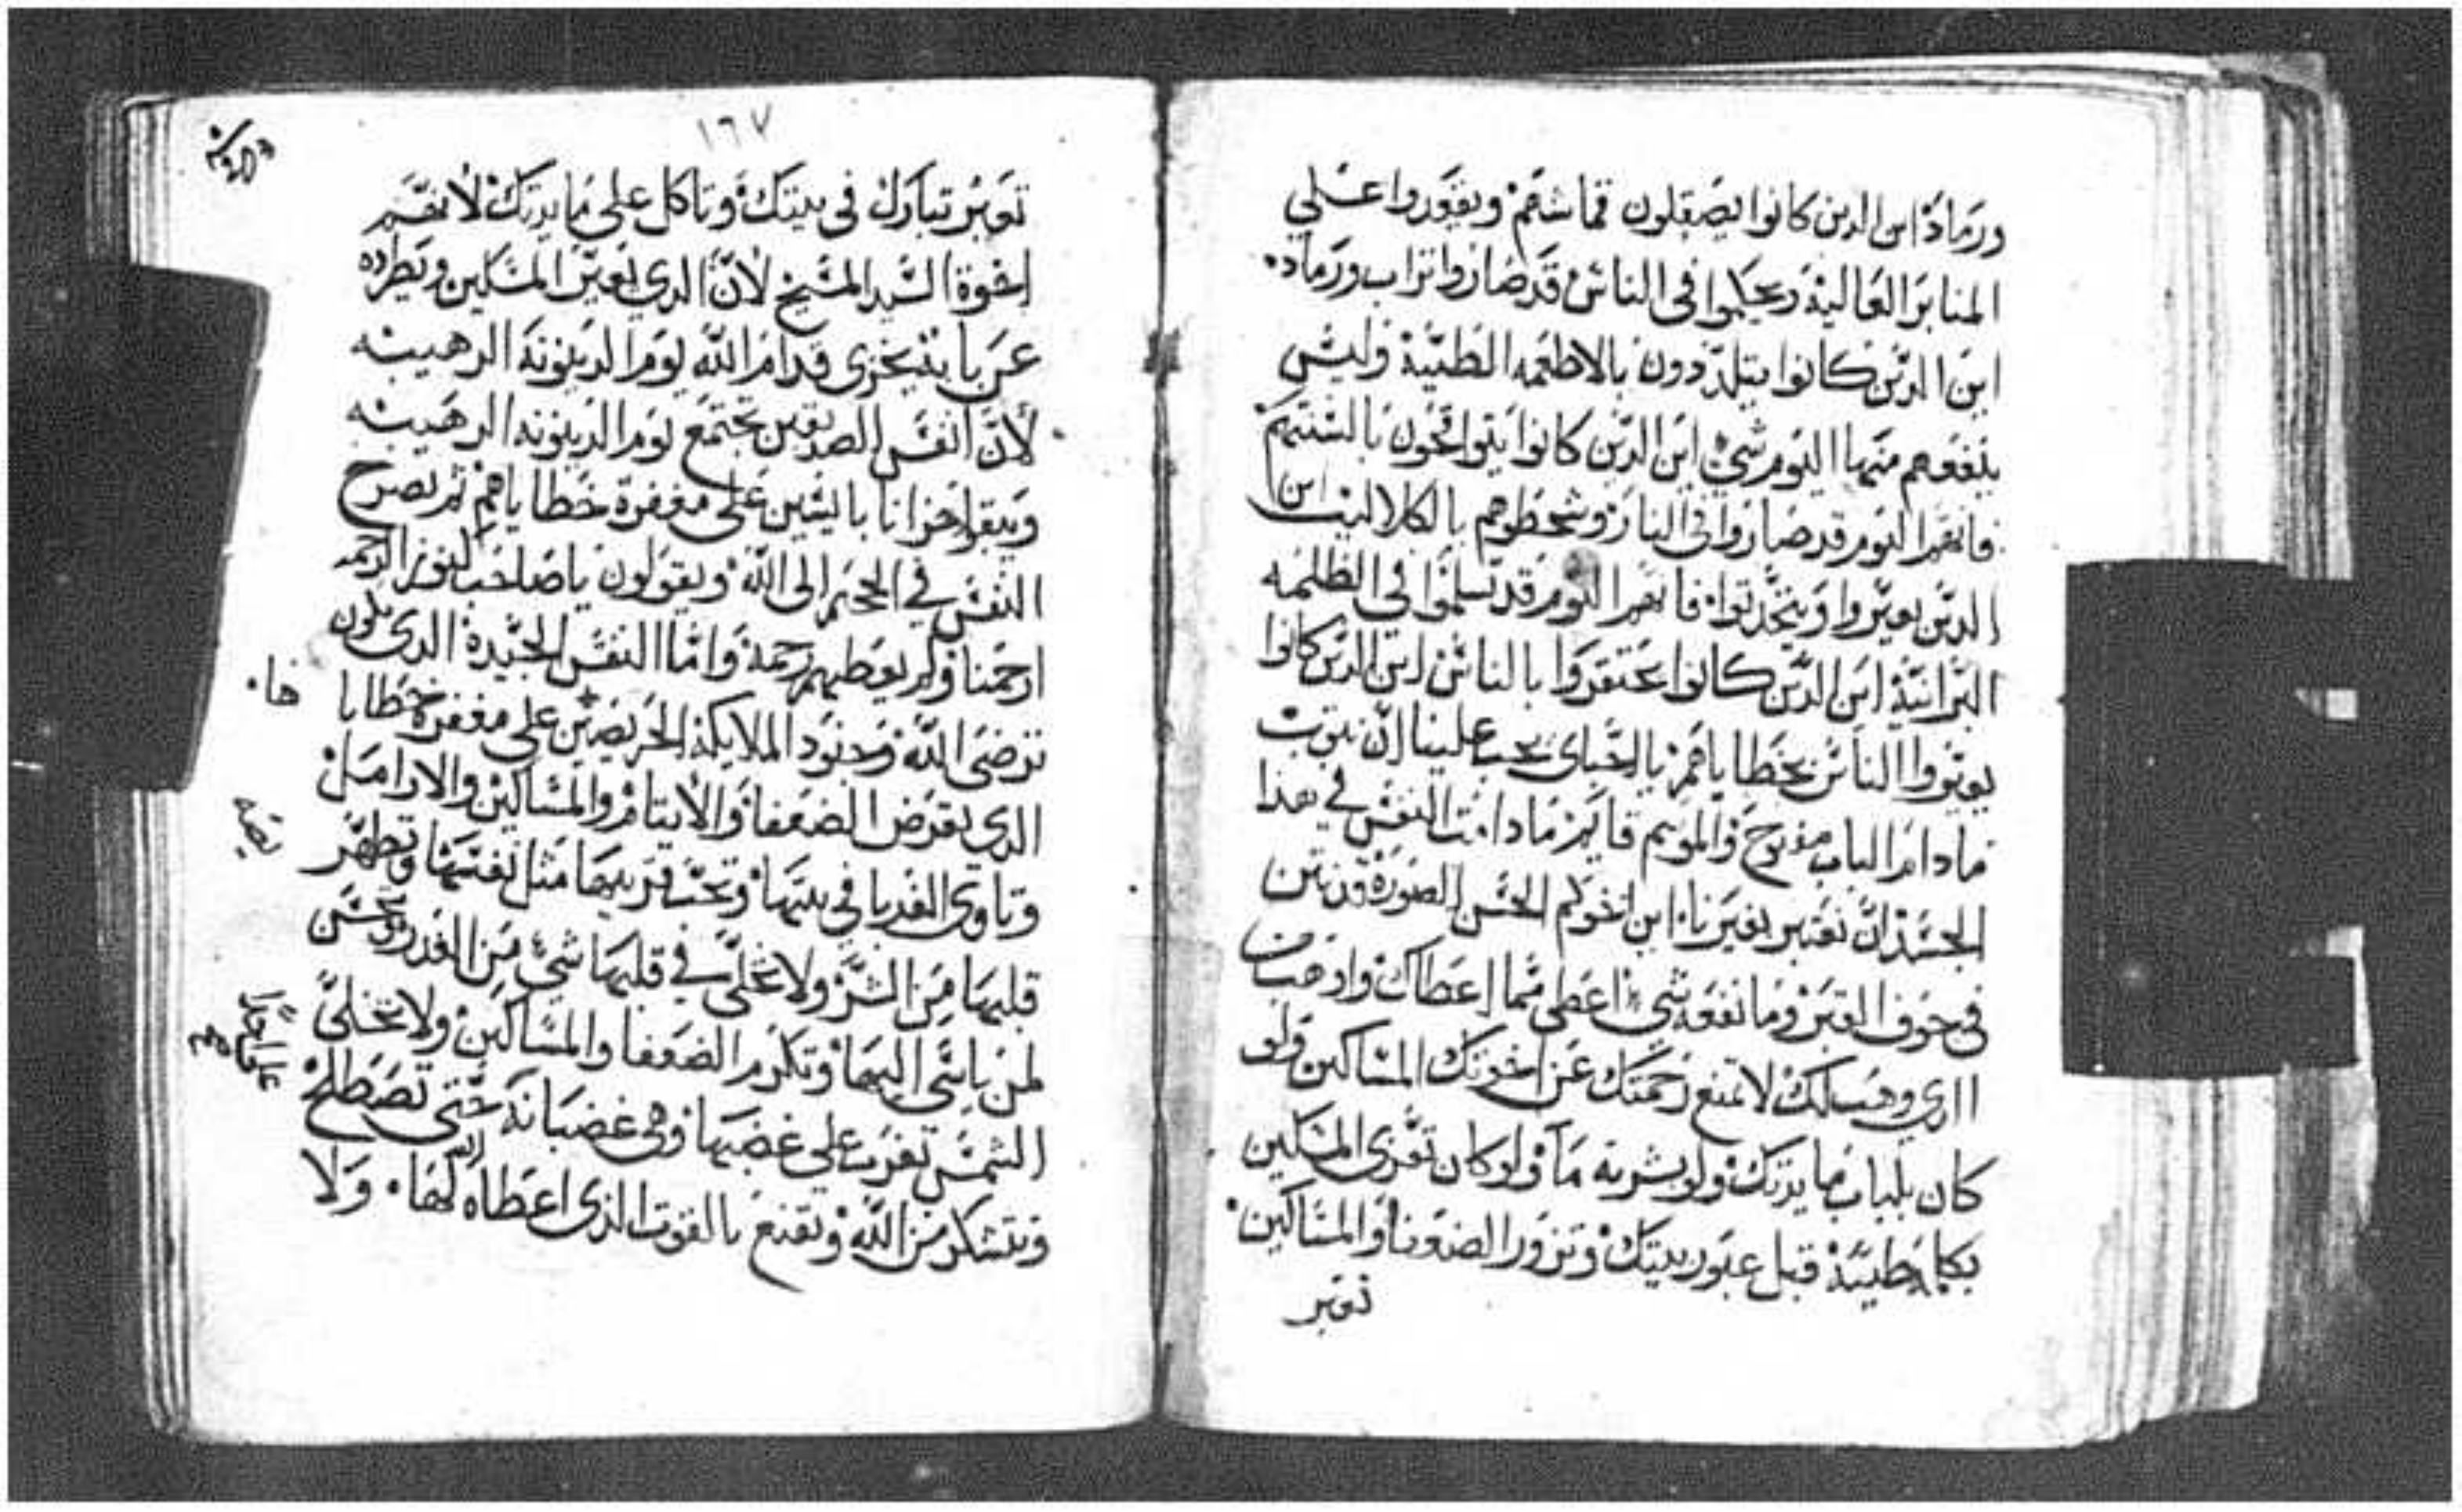 ورماد اين الدين كانوا يصقلون قماشهم ويقوروا علي
المنابر العاليه ويحكموا في الناس قد صاروا تراب ورماد.
اين الدين كانوا يتلذذون بالاطعمه الطيبة وليس
ينفعهم منها اليوم شي اين الدين كانوا يتواقحون بالسنتهم
فانهم اليوم قد صاروا في النار وشحطوهم بالكلاليب اين
الدين يعيروا فانهم اليوم قد تسلموا في الظلمه
البرانية اين الدين كانوا بالناس اين الدين كانوا
الناس بخطاياهم يااحباي يجب علينا ان نتوب
مادام الباب مفتوح والموسم قايم مادامت النفس في هدا
الجسد ان نعتبر بغيرنا. اين اخوكم الحسن الصورة
في جوف القبر وما نفعه شي اعطي مما اعطاك واوهب من
الدي وهب لك لا تمنع رحمتك عن اخوتك المساكين ولو
كان بلباب مايدتك ولو بشربة ما ولو كان تعزي المسكين
بكلمة طيبة قبل عبور بيتك وتزور الضعفا والمساكين.
تعبر
١٦٧
تعبر تبارك في بيتك وتاكل علي مايدتك لانهم
اخوة السيد المسيح لان الدي يعير المسكين ويطرده
عن بابه يخزى قدام الله يوم الدينونة الرهيبه
لان انفس الصديقين تجتمع يوم الدينونه الرهيبه
علي مغفرة خطاياهم ثم تصرخ
النفس في الجحيم الى الله ويقولون ياصاحب الرحمه
ارحمنا ولم يعطيهم رحمة واما النفس الجيدة الدى يكون
ترضى الله وجنود الملايكة الحريصين على مغفرة خطايا
ها.
الدي يقرض الضعفا والايتام والمساكين والارامل
وتاوي الغربا في بيتها وتحب قريبها مثل نفسها وتطهر
قلبها من الشر ولا تخلي في قلبها شي من الغدر وتحسن
لمن ياسي اليها وتكرم الضعفا والمساكين ولا تخلي
الشمس تغرب علي غضبها وهي غضبانة حتى تصطلح
وتتشكر من الله وتقنع بالقوت الذى اعطاه الله لها. ولا